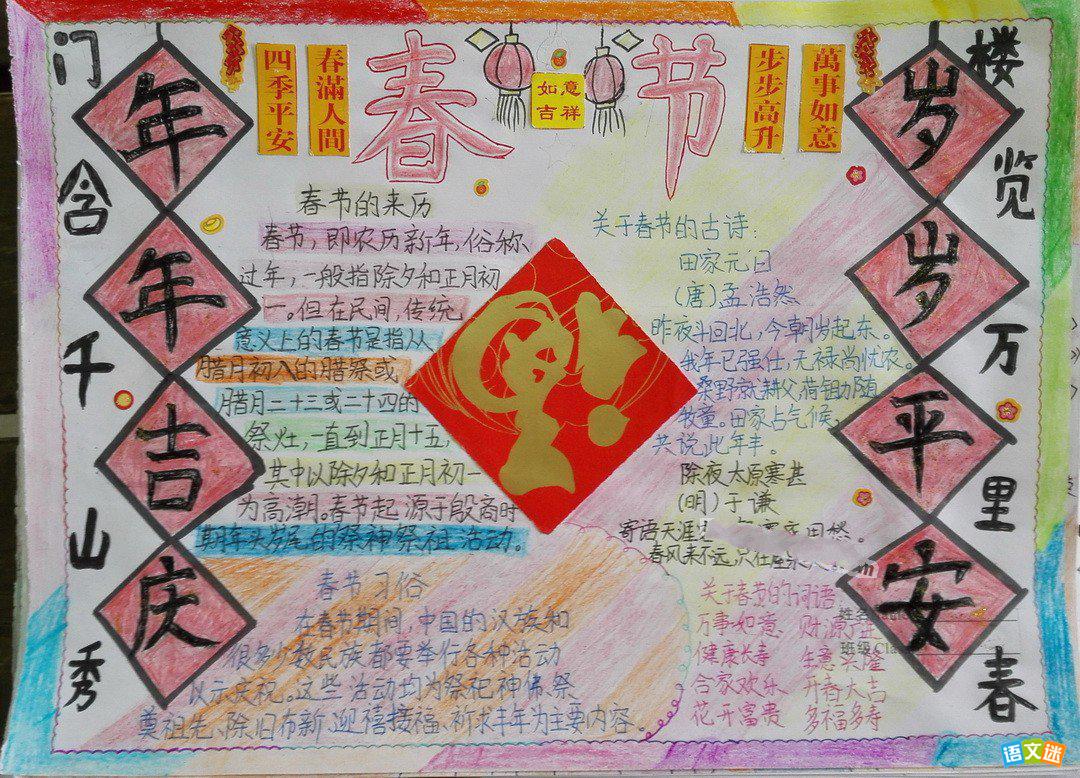 春节
四季平安
春滿人間
如意
吉祥
步步高升
萬事如意
门含千山秀
年年吉庆
岁岁平安
楼览万里春
春节的来历
春节，即农历新年，俗称
过年，一般指除夕和正月初
一。但在民间，传统
意义上的春节是指从
腊月初八的腊祭或
腊月二十三或二十四的
祭灶，一直到正月十五，
其中以除夕和正月初一
为高潮。春节起源于殷商时
期年头岁尾的祭神祭祖活动。
春节习俗
在春节期间，中国的汉族和
很多少数民族都要举行各种活动
以示庆祝。这些活动均为祭祀神佛、祭
奠祖先、除旧布新、迎禧接福、祈求丰年为主要内容。
关于春节的古诗：
田家元日
(唐)孟浩然
昨夜斗回北，今朝岁起东。
我年已强仕，无禄尚忧农。
桑野就耕父，荷锄随
牧童。田家占气候，
共说此年丰。
除夜太原寒甚
(明)于谦
寄语天涯
春风来不远，只在
关于春节的词语
万事如意 财源广进
健康长寿 生意兴隆
合家欢乐 开春大吉
花开富贵 多福多寿
班级
语文迷